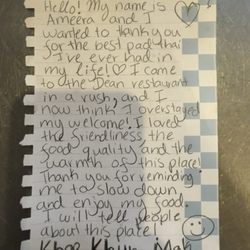 Hello! My name is
Ameera and I
wanted to thank you
for the best pad thai
I've ever had in
my life!♡ I came
to the Dean restaurant
in a rush, and I
now think I overstayed
my welcome! I loved
the friendliness, the
food quality and the
warmth of this place!
Thank you for reminding
me to slow down,
and enjoy my food.
I will tell people
about this place!
Khop Khun Mak